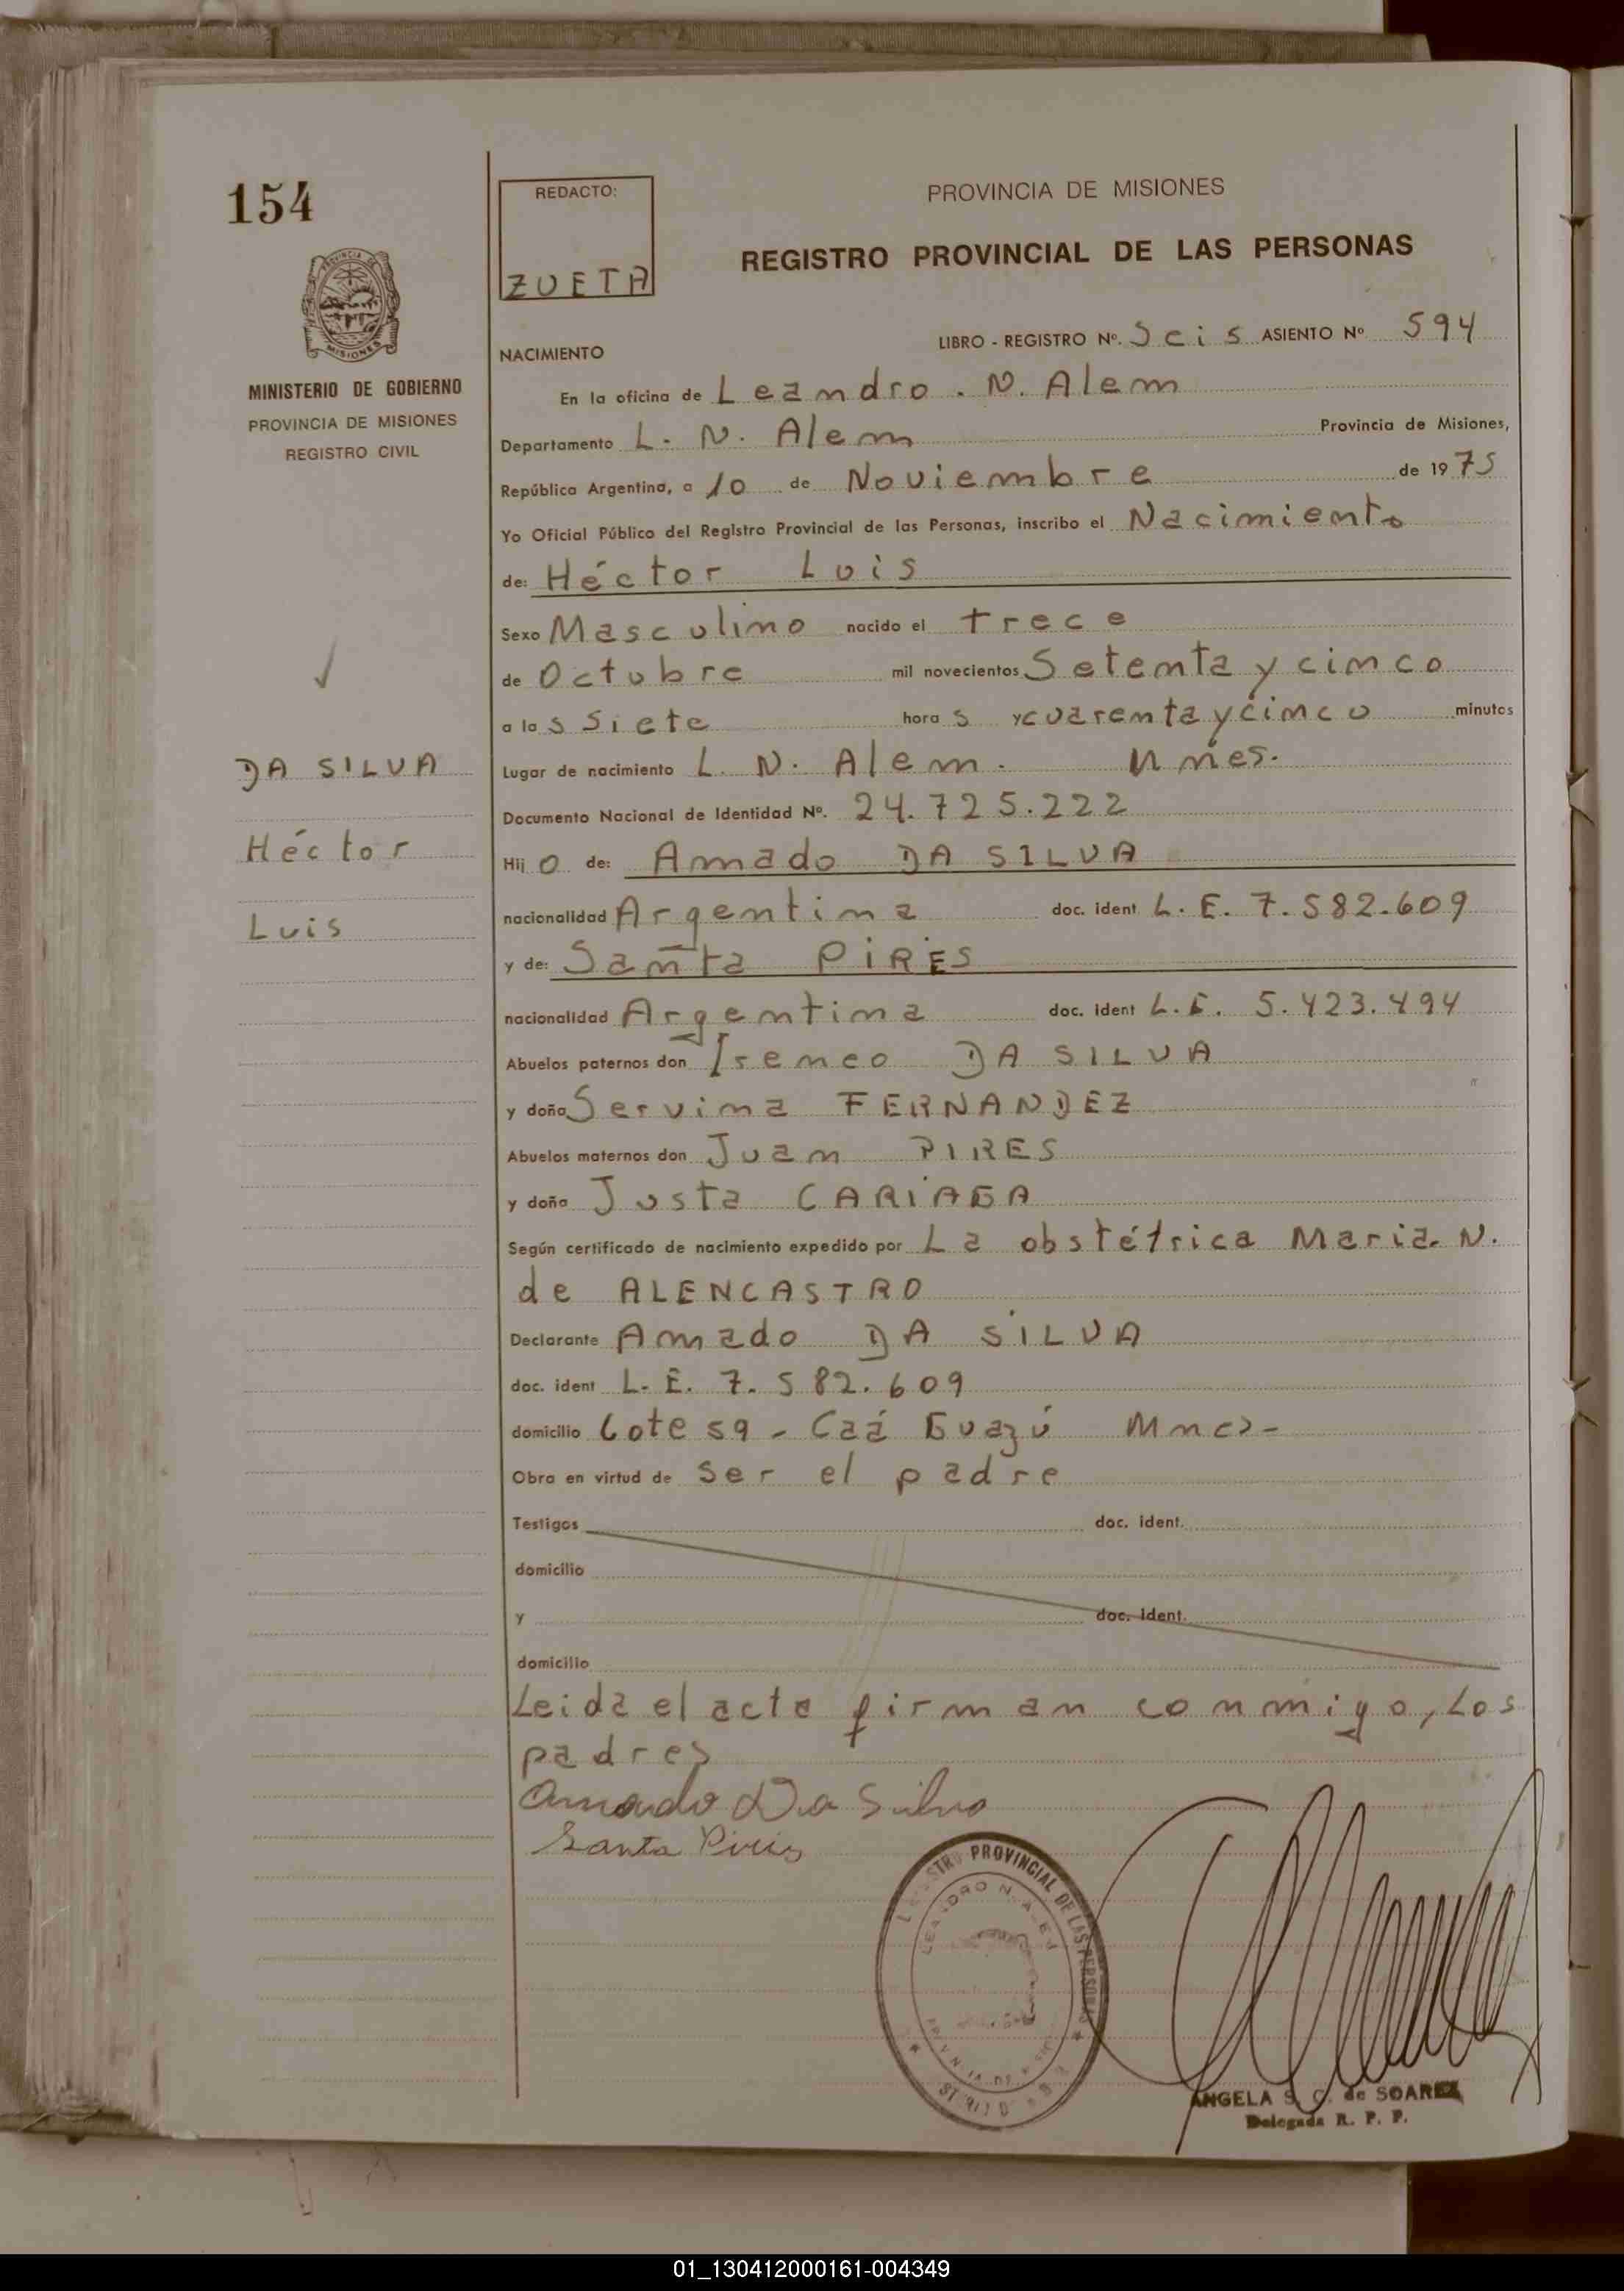 154
PROVINCIA DE
MISIONES
MINISTERIO DE GOBIERNO
PROVINCIA DE MISIONES
REGISTRO CIVIL
DA SILVA
Héctor
Luis
REDACTO:
ZUETA
PROVINCIA DE MISIONES
REGISTRO PROVINCIAL DE LAS PERSONAS
LIBRO - REGISTRO Nº. Seis ASIENTO Nº 594
NACIMIENTO
En la oficina de Leandro . N. Alem
Departamento L. N. Alem Provincia de Misiones,
República Argentina, a 10 de Noviembre de 1975
Yo Oficial Público del Registro Provincial de las Personas, inscribo el Nacimiento
de: Héctor Luis
Sexo Masculino nacido el trece
de Octubre mil novecientos Setenta y cinco
a las Siete horas y cuarenta y cinco minutos
Lugar de nacimiento L. N. Alem.
Documento Nacional de Identidad Nº. 24.725.222
Hijo de: Amado DA SILVA
nacionalidad Argentina doc. ident L. E. 7.582.609
y de: Santa PIRES
nacionalidad Argentina doc. ident L.E. 5.423.494
Abuelos paternos don Ireneo DA SILVA
y doña Servina FERNANDEZ
Abuelos maternos don Juan PIRES
y doña Justa CARIAGA
Según certificado de nacimiento expedido por La obstétrica Maria. N.
de ALENCASTRO
Declarante Amado DA SILVA
doc. ident L. E. 7.582.609
domicilio Lote 59 - Caá Guazú Mnes-
Obra en virtud de ser el padre
Testigos doc. ident.
domicilio
y doc. ident.
domicilio
Leida el acta firman conmigo, Los
padres
Amado Da Silva
Santa Piris
REGISTRO PROVINCIAL DE LAS PERSONAS
LEANDRO N. ALEM
ANGELA S. C. de SOAREZ
Delegada R. P. P.
01_130412000161-004349